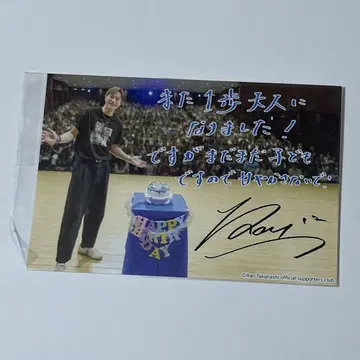 また1歩大人に
なりました!
ですがまだまだ子ども
ですので甘やかさないで!
HAPPY
BIRTHDAY
12
©Ran Takahashi official supporters club